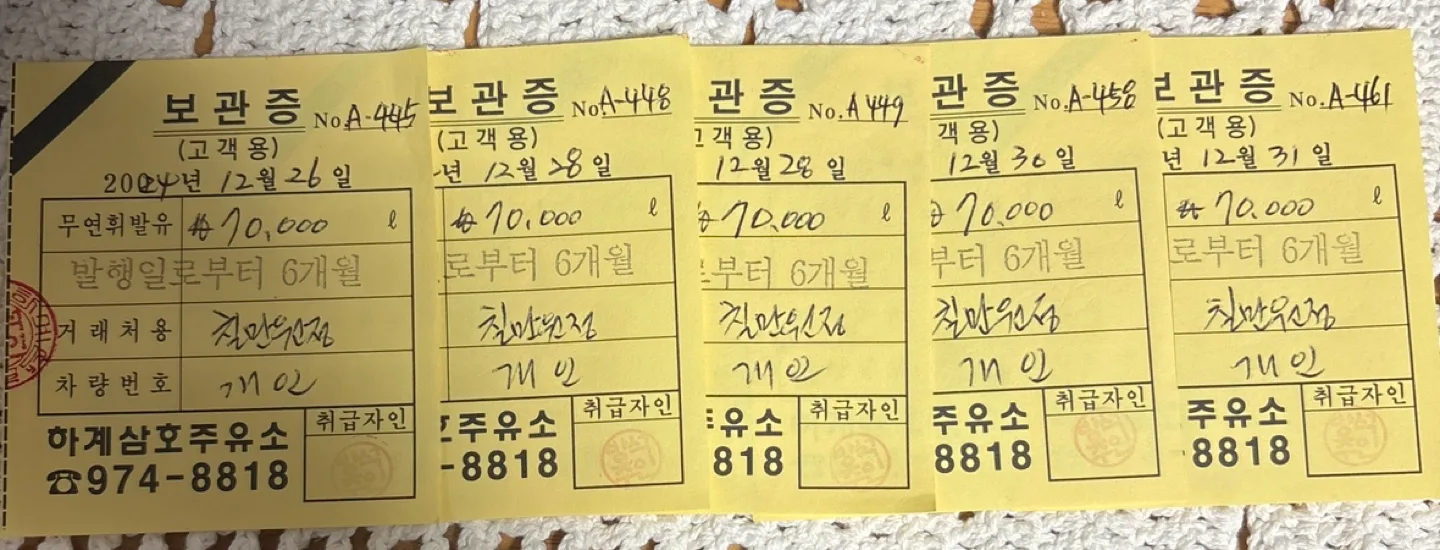 보관증 No. A-445
(고객용)
2024년 12월 26일
무연휘발유 ₩70,000 ℓ
발행일로부터 6개월
거래처용 칠만원정
차량번호 개인
하계삼호주유소
취급자인
☎974-8818
보관증 No. A-448
(고객용)
년 12월 28일
₩70,000 ℓ
로부터 6개월
칠만원정
개인
주유소
취급자인
-8818
관증 No. A 449
고객용)
12월 28일
₩70,000 ℓ
부터 6개월
칠만원정
개인
유소
취급자인
818
보관증 No. A-458
객용)
12월 30일
₩70,000 ℓ
부터 6개월
칠만원정
개인
주유소
취급자인
8818
보관증 No. A-461
(고객용)
년 12월 31일
₩70,000 ℓ
로부터 6개월
칠만원정
개인
주유소
취급자인
8818